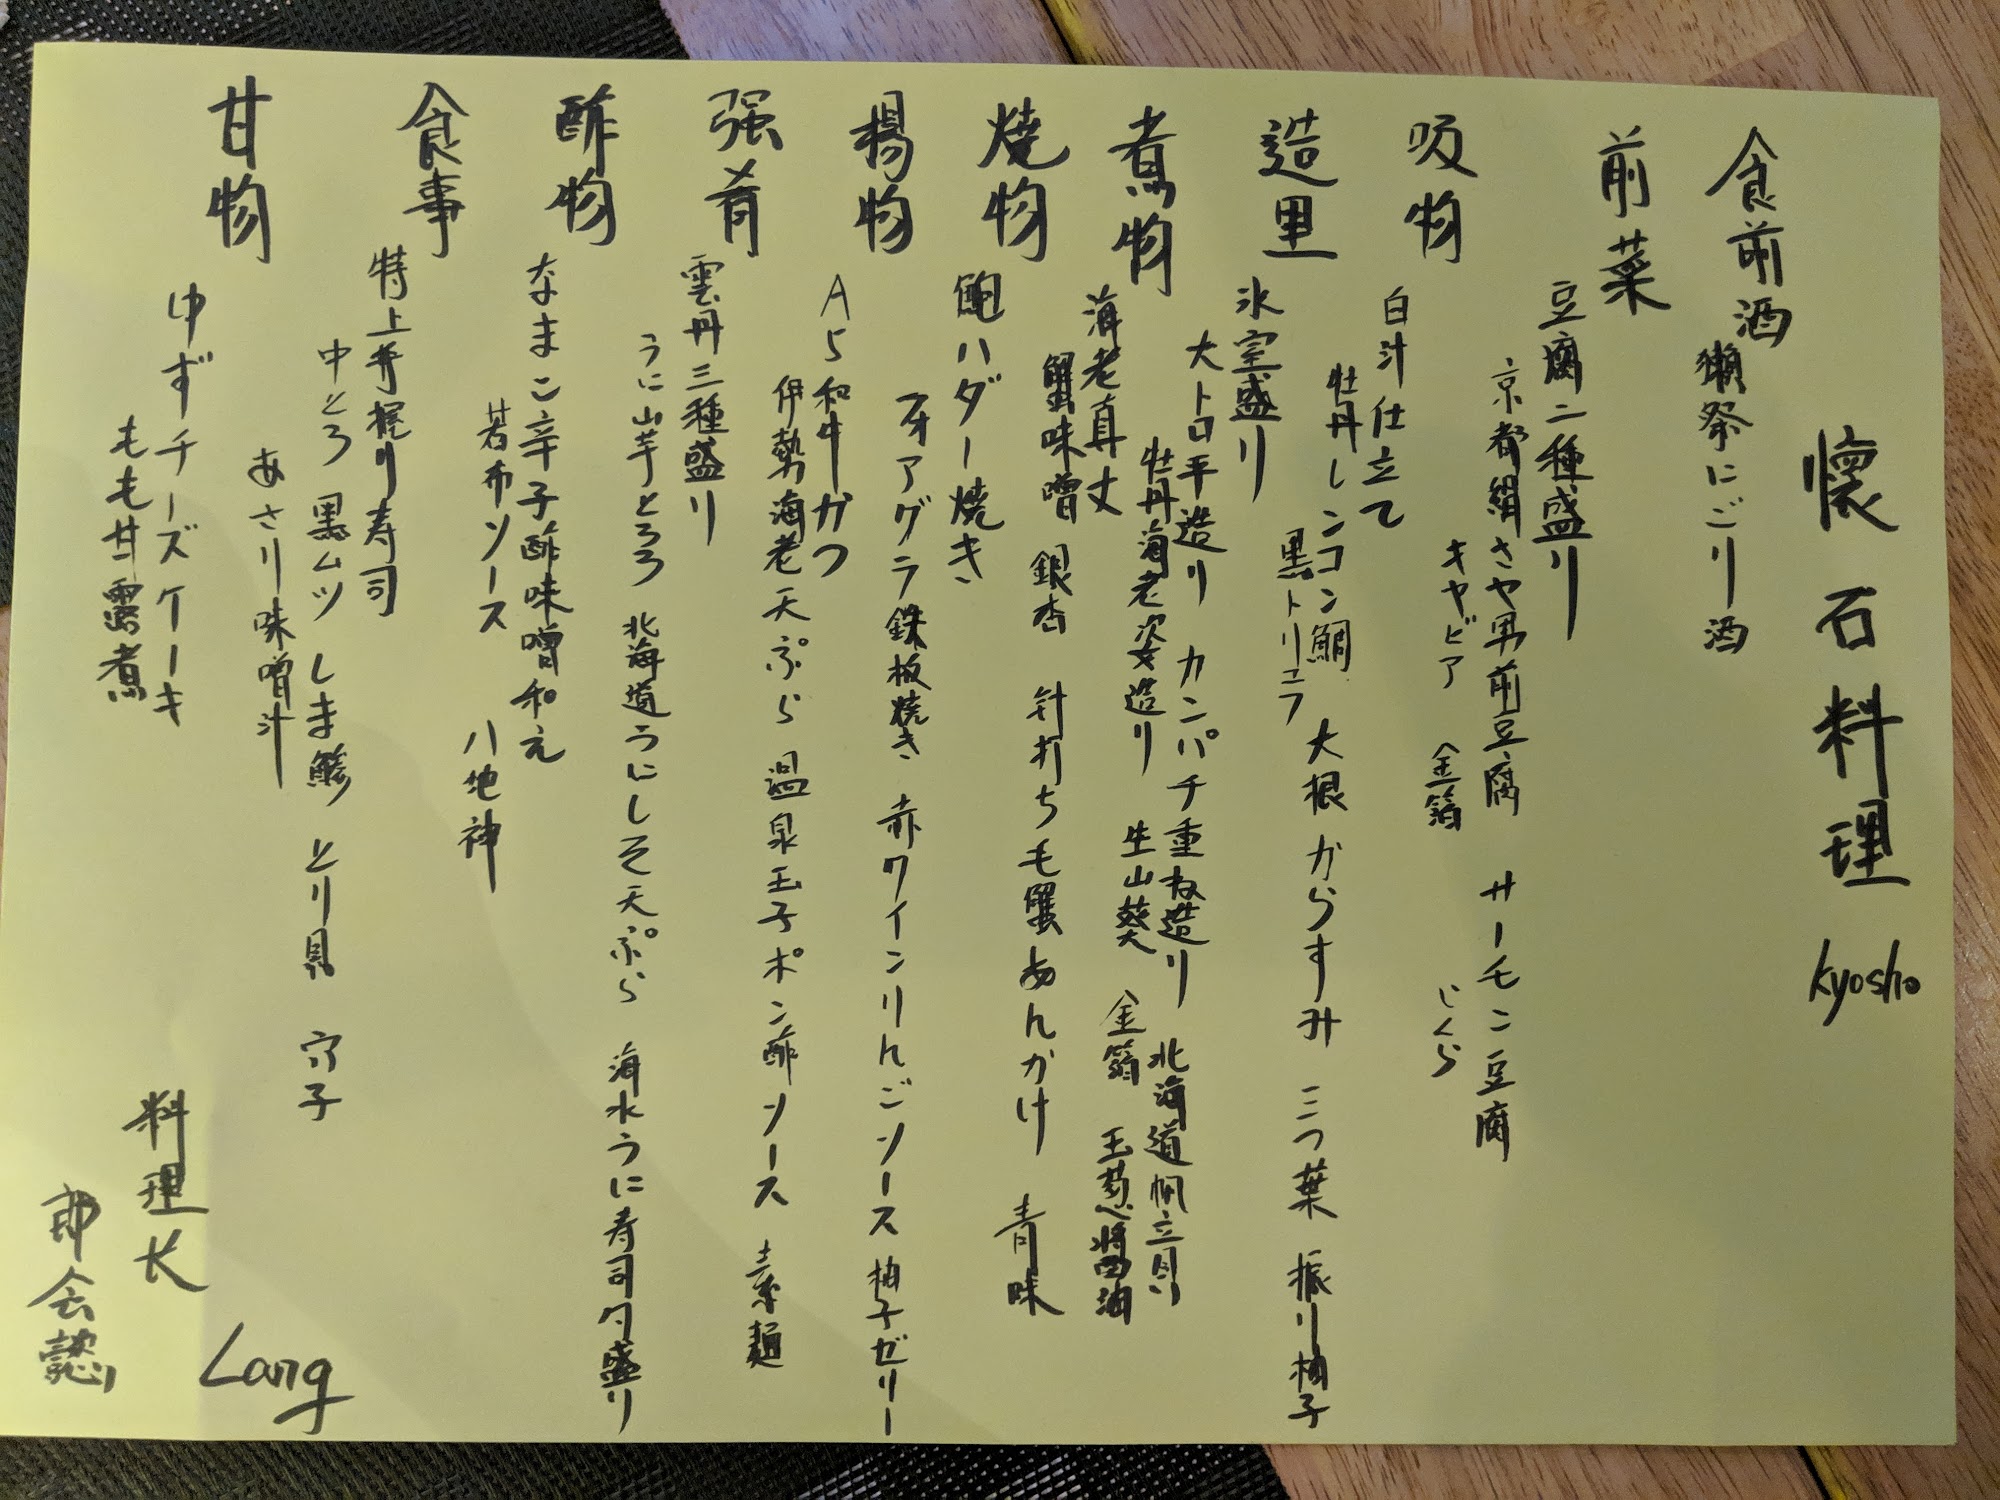 懐石料理 kyosho
食前酒
獺祭にごり酒
前菜
豆腐二種盛り
京都絹さや男前豆腐 サーモン豆腐
キャビア 金箔 じくら
吸物
白汁仕立て
牡丹しンコン鯛 大根 からすみ 三つ葉 振り柚子
黒トリュフ
造里
氷室盛り
大トロ平造り カンパチ重ね造り 北海道帆立貝
牡丹海老姿造り 生山葵 金箔 玉葱醬油
煮物
海老真丈
蟹味噌 銀杏 針打ち毛蟹あんかけ 青味
焼物
鮑バター焼き
フォアグラ鉄板焼き 赤ワインりんごソース 柚子ゼリー
揚物
A5和牛かつ
伊勢海老天ぷら 温泉玉子ポン酢ソース 素麺
强肴
雲丹三種盛り
うに山芋とろろ 北海道うにしそ天ぷら 海水うに寿司勺盛り
酢物
なまこ辛子酢味噌和え
若布ソース 八地神
食事
特上丼握り寿司
中とろ 黒ムツ しま鯵 とり貝 穴子
あさり味噌汁
甘物
ゆずチーズケーキ
もも甘露煮
料理长 Lang
郎会懿